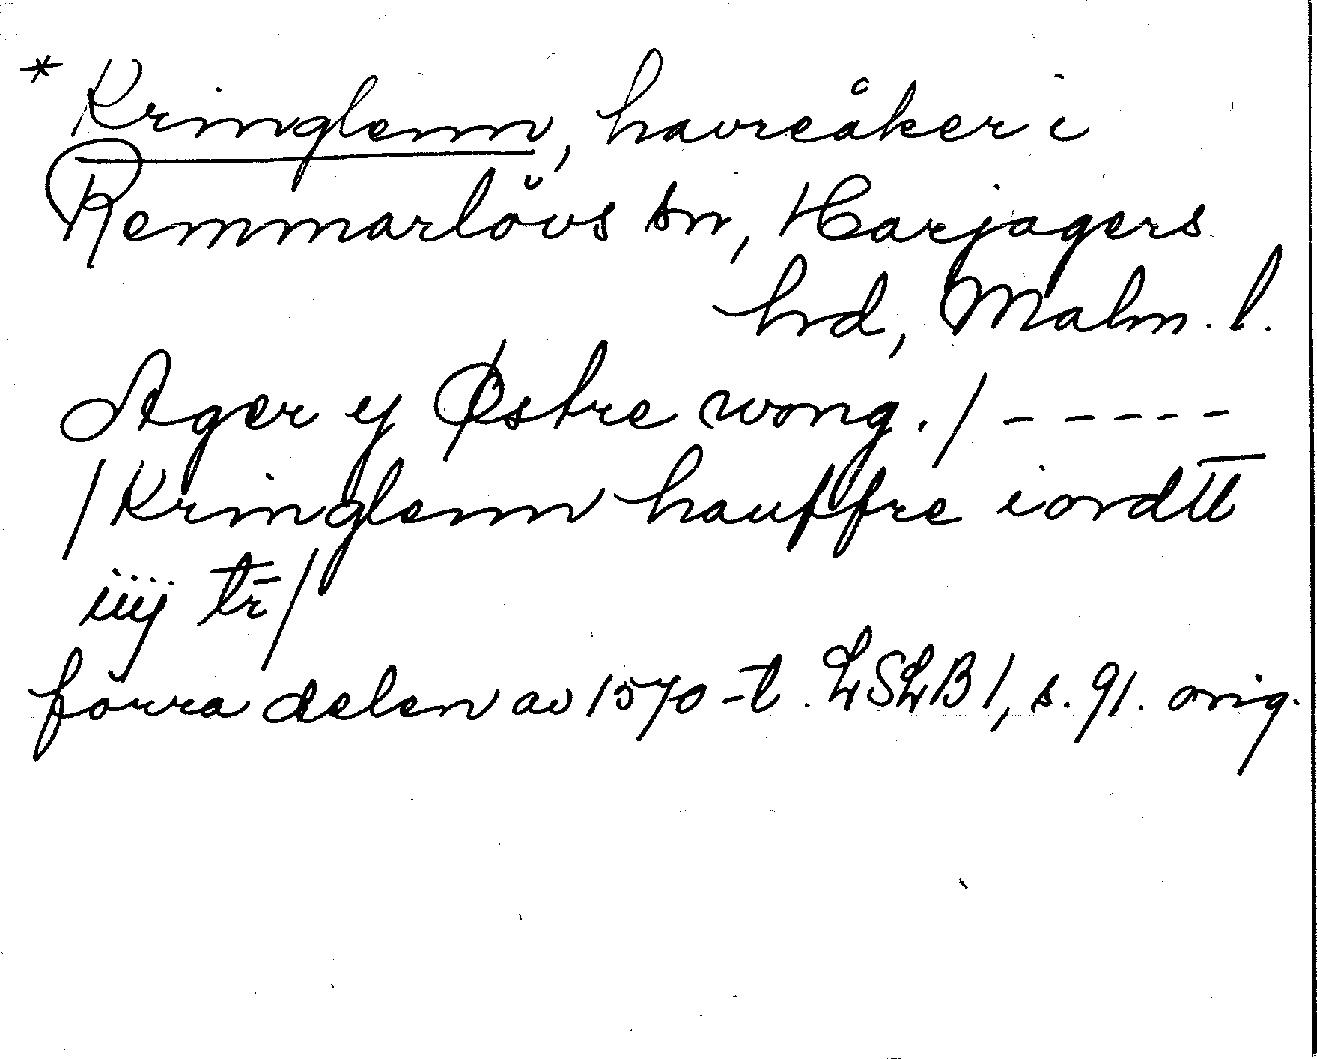 * Kringlenn, havreåker i
Remmarlövs sn, Harjagers
hrd, Malm. l.
Ager y Østre wong. / - - - - -
/ Kringlenn hauffre iordtt
iiij tr̄ /
förra delen av 1570-t. LSLB 1, s. 91. orig.